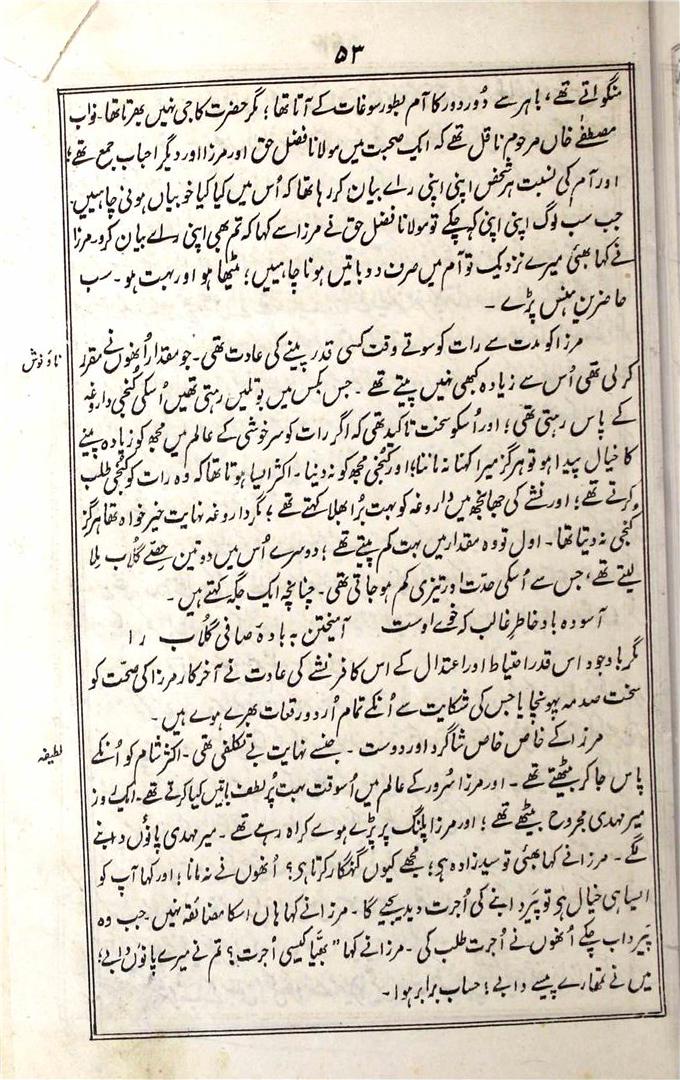 ۵۳
منگواتے تھے، باہر سے دُور دور کا آم بطور سوغات کے آتا تھا؛ مگر حضرت کا جی نہیں بھرتا تھا۔ نواب
مصطفےٰ خاں مرحوم ناقل تھے کہ ایک صحبت میں مولانا فضل حق اور مرزا اور دیگر احباب جمع تھے؛
اور آم کی نسبت ہر شخص اپنی اپنی راے بیان کر رہا تھا کہ اُس میں کیا کیا خوبیاں ہونی چاہییں۔
جب سب لوگ اپنی اپنی کہہ چکے تو مولانا فضل حق نے مرزا سے کہا کہ تم بھی اپنی راے بیان کرو۔ مرزا
نے کہا بھئی میرے نزدیک تو آم میں صرف دو باتیں ہونا چاہییں؛ میٹھا ہو اور بہت ہو۔ سب
حاضرین ہنس پڑے۔
ناؤ نوش
مرزا کو مدت سے رات کو سوتے وقت کسی قدر پینے کی عادت تھی۔ جو مقدار اُنھوں نے مقرر
کر لی تھی اُس سے زیادہ کبھی نہیں پیتے تھے۔ جس بکس میں بوتلیں رہتی تھیں اُسکی کُنجی داروغہ
کے پاس رہتی تھی؛ اور اُسکو سخت تاکید تھی کہ اگر رات کو سرخوشی کے عالم میں مجھ کو زیادہ پینے
کا خیال پیدا ہو تو ہرگز میرا کہنا نہ ماننا؛ اور کُنجی مجھ کو نہ دینا۔ اکثر ایسا ہوتا تھا کہ وہ رات کو کُنجی طلب
کرتے تھے؛ اور نشے کی جھانجھ میں داروغہ کو بہت بُرا بھلا کہتے تھے؛ مگر داروغہ نہایت خیرخواہ تھا ہرگز
کُنجی نہ دیتا تھا۔ اول تو وہ مقدار میں بہت کم پیتے تھے؛ دوسرے اُس میں دو تین حصّے گلاب ملا
لیتے تھے، جس سے اُسکی حدّت اور تیزی کم ہو جاتی تھی۔ چنانچہ ایک جگہ کہتے ہیں۔
آسودہ باد خاطرِ غالب کہ خوے اوست آمیختن بہ بادۂ صافی گلاب را
مگر باوجود اس قدر احتیاط اور اعتدال کے اس کافر نشے کی عادت نے آخر کار مرزا کی صحّت کو
سخت صدمہ پہونچایا جس کی شکایت سے اُنکے تمام اُردو رقعات بھرے ہوے ہیں۔
لطیفہ
مرزا کے خاص خاص شاگرد اور دوست۔ جنسے نہایت بے تکلفی تھی۔ اکثر شام کو اُنکے
پاس جا کر بیٹھتے تھے۔ اور مرزا سُرور کے عالم میں اُسوقت بہت پُر لطف باتیں کیا کرتے تھے۔ ایک روز
میر مہدی مجروح بیٹھے تھے؛ اور مرزا پلنگ پر پڑے ہوے کراہ رہے تھے۔ میر مہدی پاؤں دابنے
لگے۔ مرزا نے کہا بھئی تو سید زادہ ہی؛ مجھے کیوں گنہگار کرتا ہی؟ اُنھوں نے نہ مانا؛ اور کہا آپ کو
ایسا ہی خیال ہی تو پیر دابنے کی اُجرت دیدیجیے گا۔ مرزا نے کہا ہاں اسکا مضائقہ نہیں۔ جب وہ
پیر داب چکے اُنھوں نے اُجرت طلب کی۔ مرزا نے کہا "بھیّا کیسی اُجرت؟ تم نے میرے پاؤں دابے؛
میں نے تمھارے پیسے دابے؛ حساب برابر ہوا۔